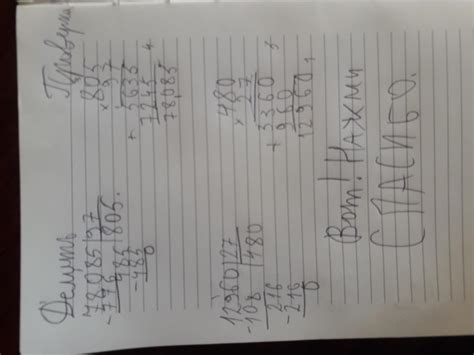 Делить
78085|97
-776|805.
485
-485
0
Проверка
×805
97
+5635
7245
78085
12960|27
-108|480
216
-216
0
×480
27
+3360
960
12960
Вот! Нажми
СПАСИБО.